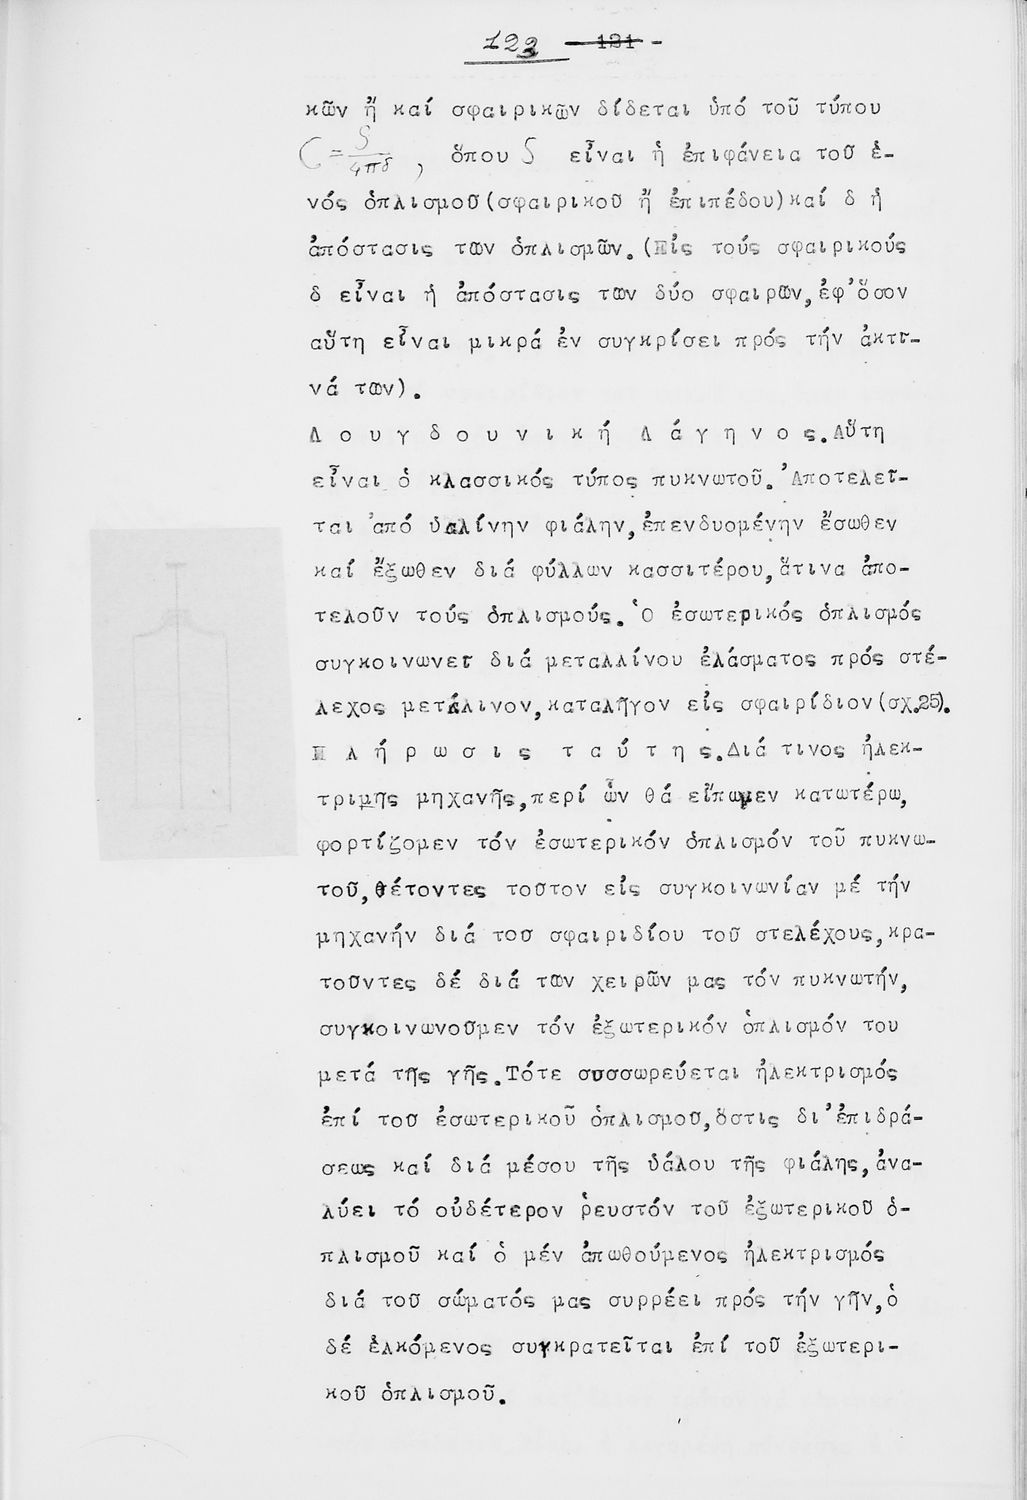 123 121 -
κῶν ἤ καί σφαιρικῶν δίδεται ὑπό τοῦ τύπου
C = S/4πδ , ὅπου S εἶναι ἡ ἐπιφάνεια τοῦ ἑ-
νός ὁπλισμοῦ(σφαιρικοῦ ἤ ἐπιπέδου)καί δ ἡ
ἀπόστασις τῶν ὁπλισμῶν.(Εἰς τούς σφαιρικούς
δ εἶναι ἡ ἀπόστασις τῶν δύο σφαιρῶν,ἐφ'ὅσον
αὕτη εἶναι μικρά ἐν συγκρίσει πρός τήν ἀκτῖ-
νά των).
Λ ο υ γ δ ο υ ν ι κ ή Λ ά γ η ν ο ς.Αὕτη
εἶναι ὁ κλασσικός τύπος πυκνωτοῦ.Ἀποτελεῖ-
ται ἀπό ὑαλίνην φιάλην,ἐπενδυομένην ἔσωθεν
καί ἔξωθεν διά φύλλων κασσιτέρου,ἅτινα ἀπο-
τελοῦν τούς ὁπλισμούς.Ὁ ἐσωτερικός ὁπλισμός
συγκοινωνεῖ διά μεταλλίνου ἐλάσματος πρός στέ-
λεχος μετάλινον,καταλῆγον εἰς σφαιρίδιον(σχ.25).
Π λ ή ρ ω σ ι ς τ α ύ τ η ς.Διά τινος ἠλεκ-
τριμῆς μηχανῆς,περί ὧν θά εἴπωμεν κατωτέρω,
φορτίζομεν τόν ἐσωτερικόν ὁπλισμόν τοῦ πυκνω-
τοῦ,θέτοντες τοῦτον εἰς συγκοινωνίαν μέ τήν
μηχανήν διά τοῦ σφαιριδίου τοῦ στελέχους,κρα-
τοῦντες δέ διά τῶν χειρῶν μας τόν πυκνωτήν,
συγκοινωνοῦμεν τόν ἐξωτερικόν ὁπλισμόν του
μετά τῆς γῆς.Τότε συσσωρεύεται ἠλεκτρισμός
ἐπί τοῦ ἐσωτερικοῦ ὁπλισμοῦ,ὅστις δι'ἐπιδρά-
σεως καί διά μέσου τῆς ὑάλου τῆς φιάλης,ἀνα-
λύει τό οὐδέτερον ῥευστόν τοῦ ἐξωτερικοῦ ὁ-
πλισμοῦ καί ὁ μέν ἀπωθούμενος ἠλεκτρισμός
διά τοῦ σώματός μας συρρέει πρός τήν γῆν,ὁ
δέ ἑλκόμενος συγκρατεῖται ἐπί τοῦ ἐξωτερι-
κοῦ ὁπλισμοῦ.